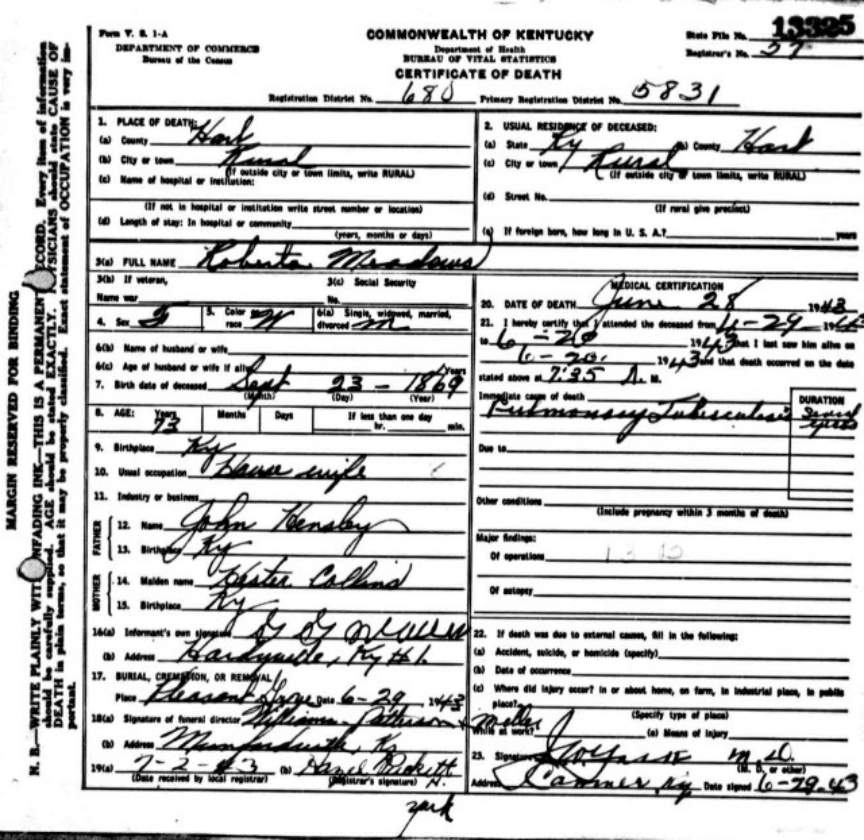 MARGIN RESERVED FOR BINDING
N. B.—WRITE PLAINLY WITH UNFADING INK—THIS IS A PERMANENT RECORD. Every item of information
should be carefully supplied. AGE should be stated EXACTLY. PHYSICIANS should state CAUSE OF
DEATH in plain terms, so that it may be properly classified. Exact statement of OCCUPATION is very im-
portant.
Form V. S. 1-A
DEPARTMENT OF COMMERCE
Bureau of the Census
COMMONWEALTH OF KENTUCKY
Department of Health
BUREAU OF VITAL STATISTICS
CERTIFICATE OF DEATH
State File No. 13325
Registrar's No. 27
Registration District No. 680 Primary Registration District No. 5831
1. PLACE OF DEATH:
(a) County Hart
(b) City or town Rural
(If outside city or town limits, write RURAL)
(c) Name of hospital or institution:
(If not in hospital or institution write street number or location)
(d) Length of stay: In hospital or community
(years, months or days)
2. USUAL RESIDENCE OF DECEASED:
(a) State Ky (b) County Hart
(c) City or town Rural
(If outside city or town limits, write RURAL)
(d) Street No.
(If rural give precinct)
(e) If foreign born, how long in U. S. A.? years
3(a) FULL NAME Roberta Meadows
3(b) If veteran,
Name war
3(c) Social Security
No.
4. Sex F
5. Color or race W
6(a) Single, widowed, married,
divorced M
6(b) Name of husband or wife
6(c) Age of husband or wife if alive Years
7. Birth date of deceased Sept 23 - 1869
(Month) (Day) (Year)
8. AGE: Years 73 Months Days If less than one day
hr. min.
9. Birthplace Ky
10. Usual occupation House wife
11. Industry or business
FATHER
12. Name John Hensley
13. Birthplace Ky
MOTHER
14. Maiden name Hester Collins
15. Birthplace Ky
16(a) Informant's own signature
(b) Address Hardyville, Ky #1.
17. BURIAL, CREMATION, OR REMOVAL
Place Pleasant Grove Date 6-29, 1943
18(a) Signature of funeral director
(b) Address Munfordville, Ky
19(a) 7-2-43 (b)
(Date received by local registrar) (Registrar's signature)
MEDICAL CERTIFICATION
20. DATE OF DEATH June 28 1943
21. I hereby certify that I attended the deceased from 1943
to 6-20 1943 that I last saw him alive on
6-20, 1943 and that death occurred on the date
stated above at 7:35 A. M.
Immediate cause of death
Pulmonary Tuberculosis
DURATION
Several
years
Due to
Other conditions
(Include pregnancy within 3 months of death)
Major findings:
Of operations
Of autopsy
22. If death was due to external causes, fill in the following:
(a) Accident, suicide, or homicide (specify)
(b) Date of occurrence
(c) Where did injury occur? In or about home, on farm, in industrial place, in public
place?
(Specify type of place)
While at work? (e) Means of injury
23. Signature M. D.
(M. D. or other)
Address Canmer, Ky Date signed 6-29-43